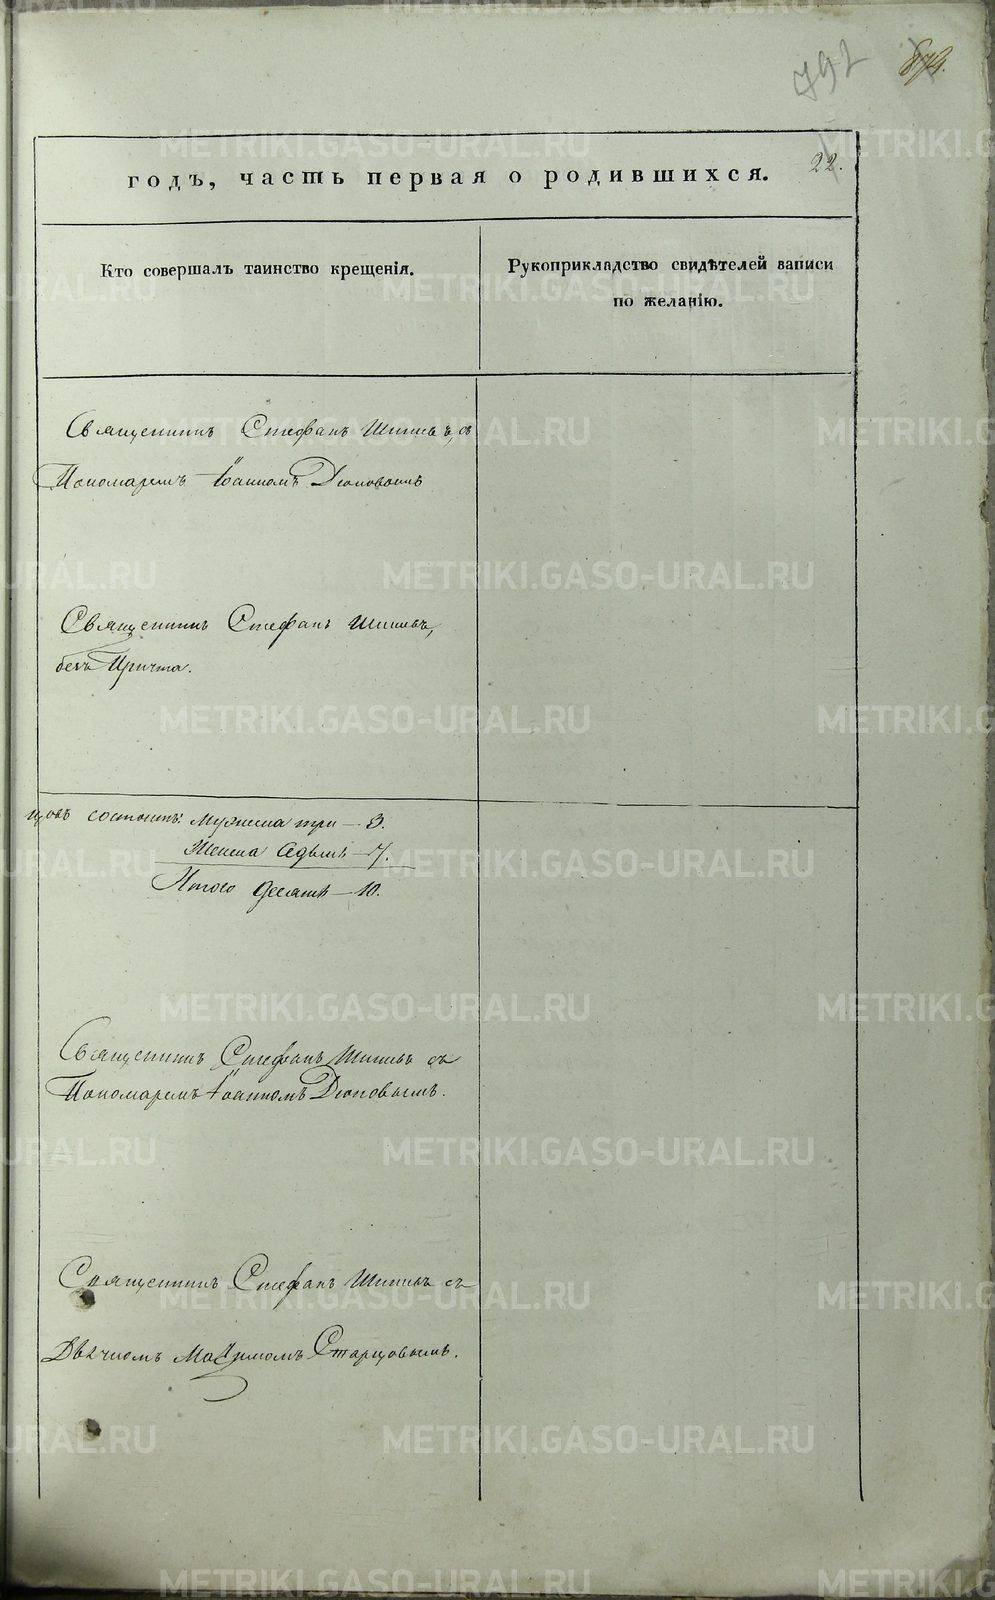 792
22.
годъ, часть первая о родившихся.
Кто совершалъ таинство крещенія.
Рукоприкладство свидѣтелей записи
по желанію.
Священникъ Стефанъ съ
Пономаремъ Іоанномъ Дюповымъ
Священникъ Стефанъ
безъ Причта.
состоитъ: Мужеска три — 3.
Женска Седмь — 7.
Итого десять — 10.
Священникъ Стефанъ съ
Пономаремъ Іоанномъ Дюповымъ.
Священникъ Стефанъ съ
Дьячкомъ Максимомъ Старцовымъ.
METRIKI.GASO-URAL.RU